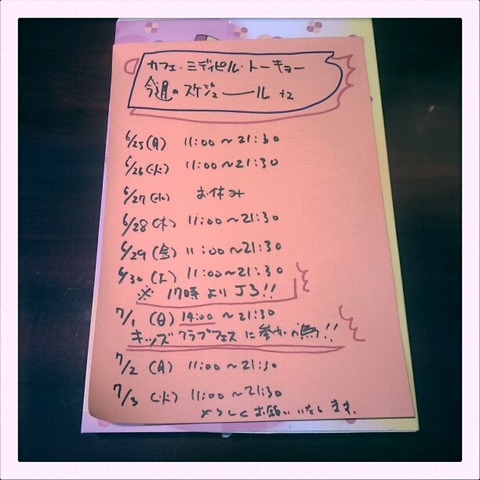 カフェ・ミディピル・トーキョー
今週のスケジュール +2
6/25(月) 11:00〜21:30
6/26(火) 11:00〜21:30
6/27(水) お休み
6/28(木) 11:00〜21:30
6/29(金) 11:00〜21:30
6/30(土) 11:00〜21:30
※ 17時より J3!!
7/1(日) 14:00〜21:30
キッズクラブフェスに参加の為!!
7/2(月) 11:00〜21:30
7/3(火) 11:00〜21:30
よろしくお願いいたします。